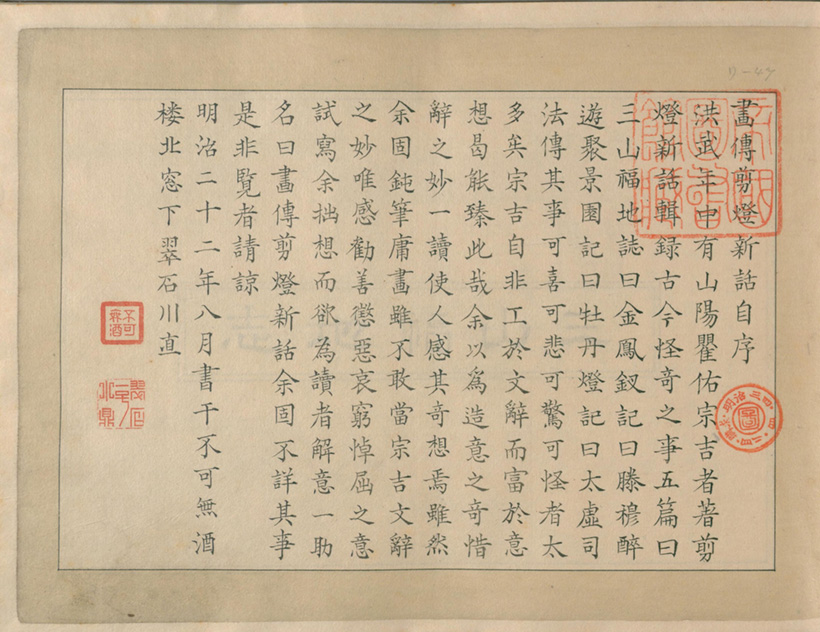 畫傳剪燈新話自序
洪武年中有山陽瞿佑宗吉者著剪
燈新話輯録古今怪奇之事五篇曰
三山福地誌曰金鳳釵記曰滕穆醉
遊聚景園記曰牡丹燈記曰太虛司
法傳其事可喜可悲可驚可怪者太
多矣宗吉自非工於文辭而富於意
想曷能臻此哉余以爲造意之奇惜
辭之妙一讀使人感其奇想焉雖然
余固鈍筆庸畫雖不敢當宗吉文辭
之妙唯感勸善懲惡哀窮悼屈之意
試寫余拙想而欲為讀者解意一助
名曰畫傳剪燈新話余固不詳其事
是非覽者請諒
明治二十二年八月書干不可無酒
楼北窓下翠石川直
不可無酒